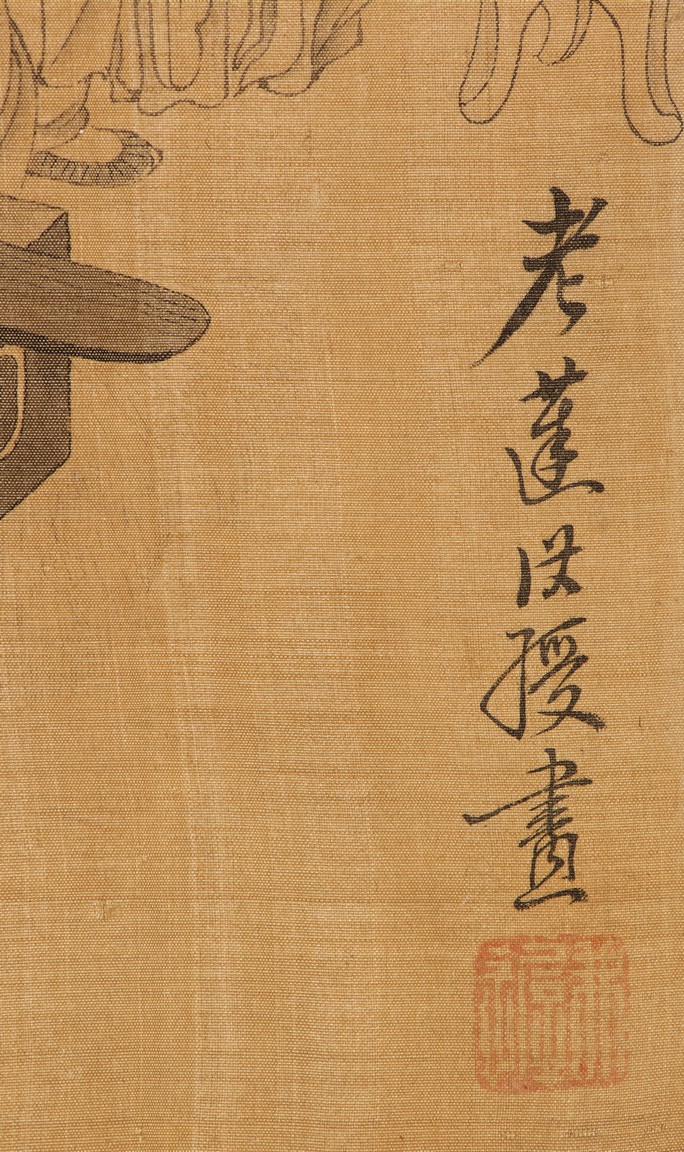 老蓮洪綬畫